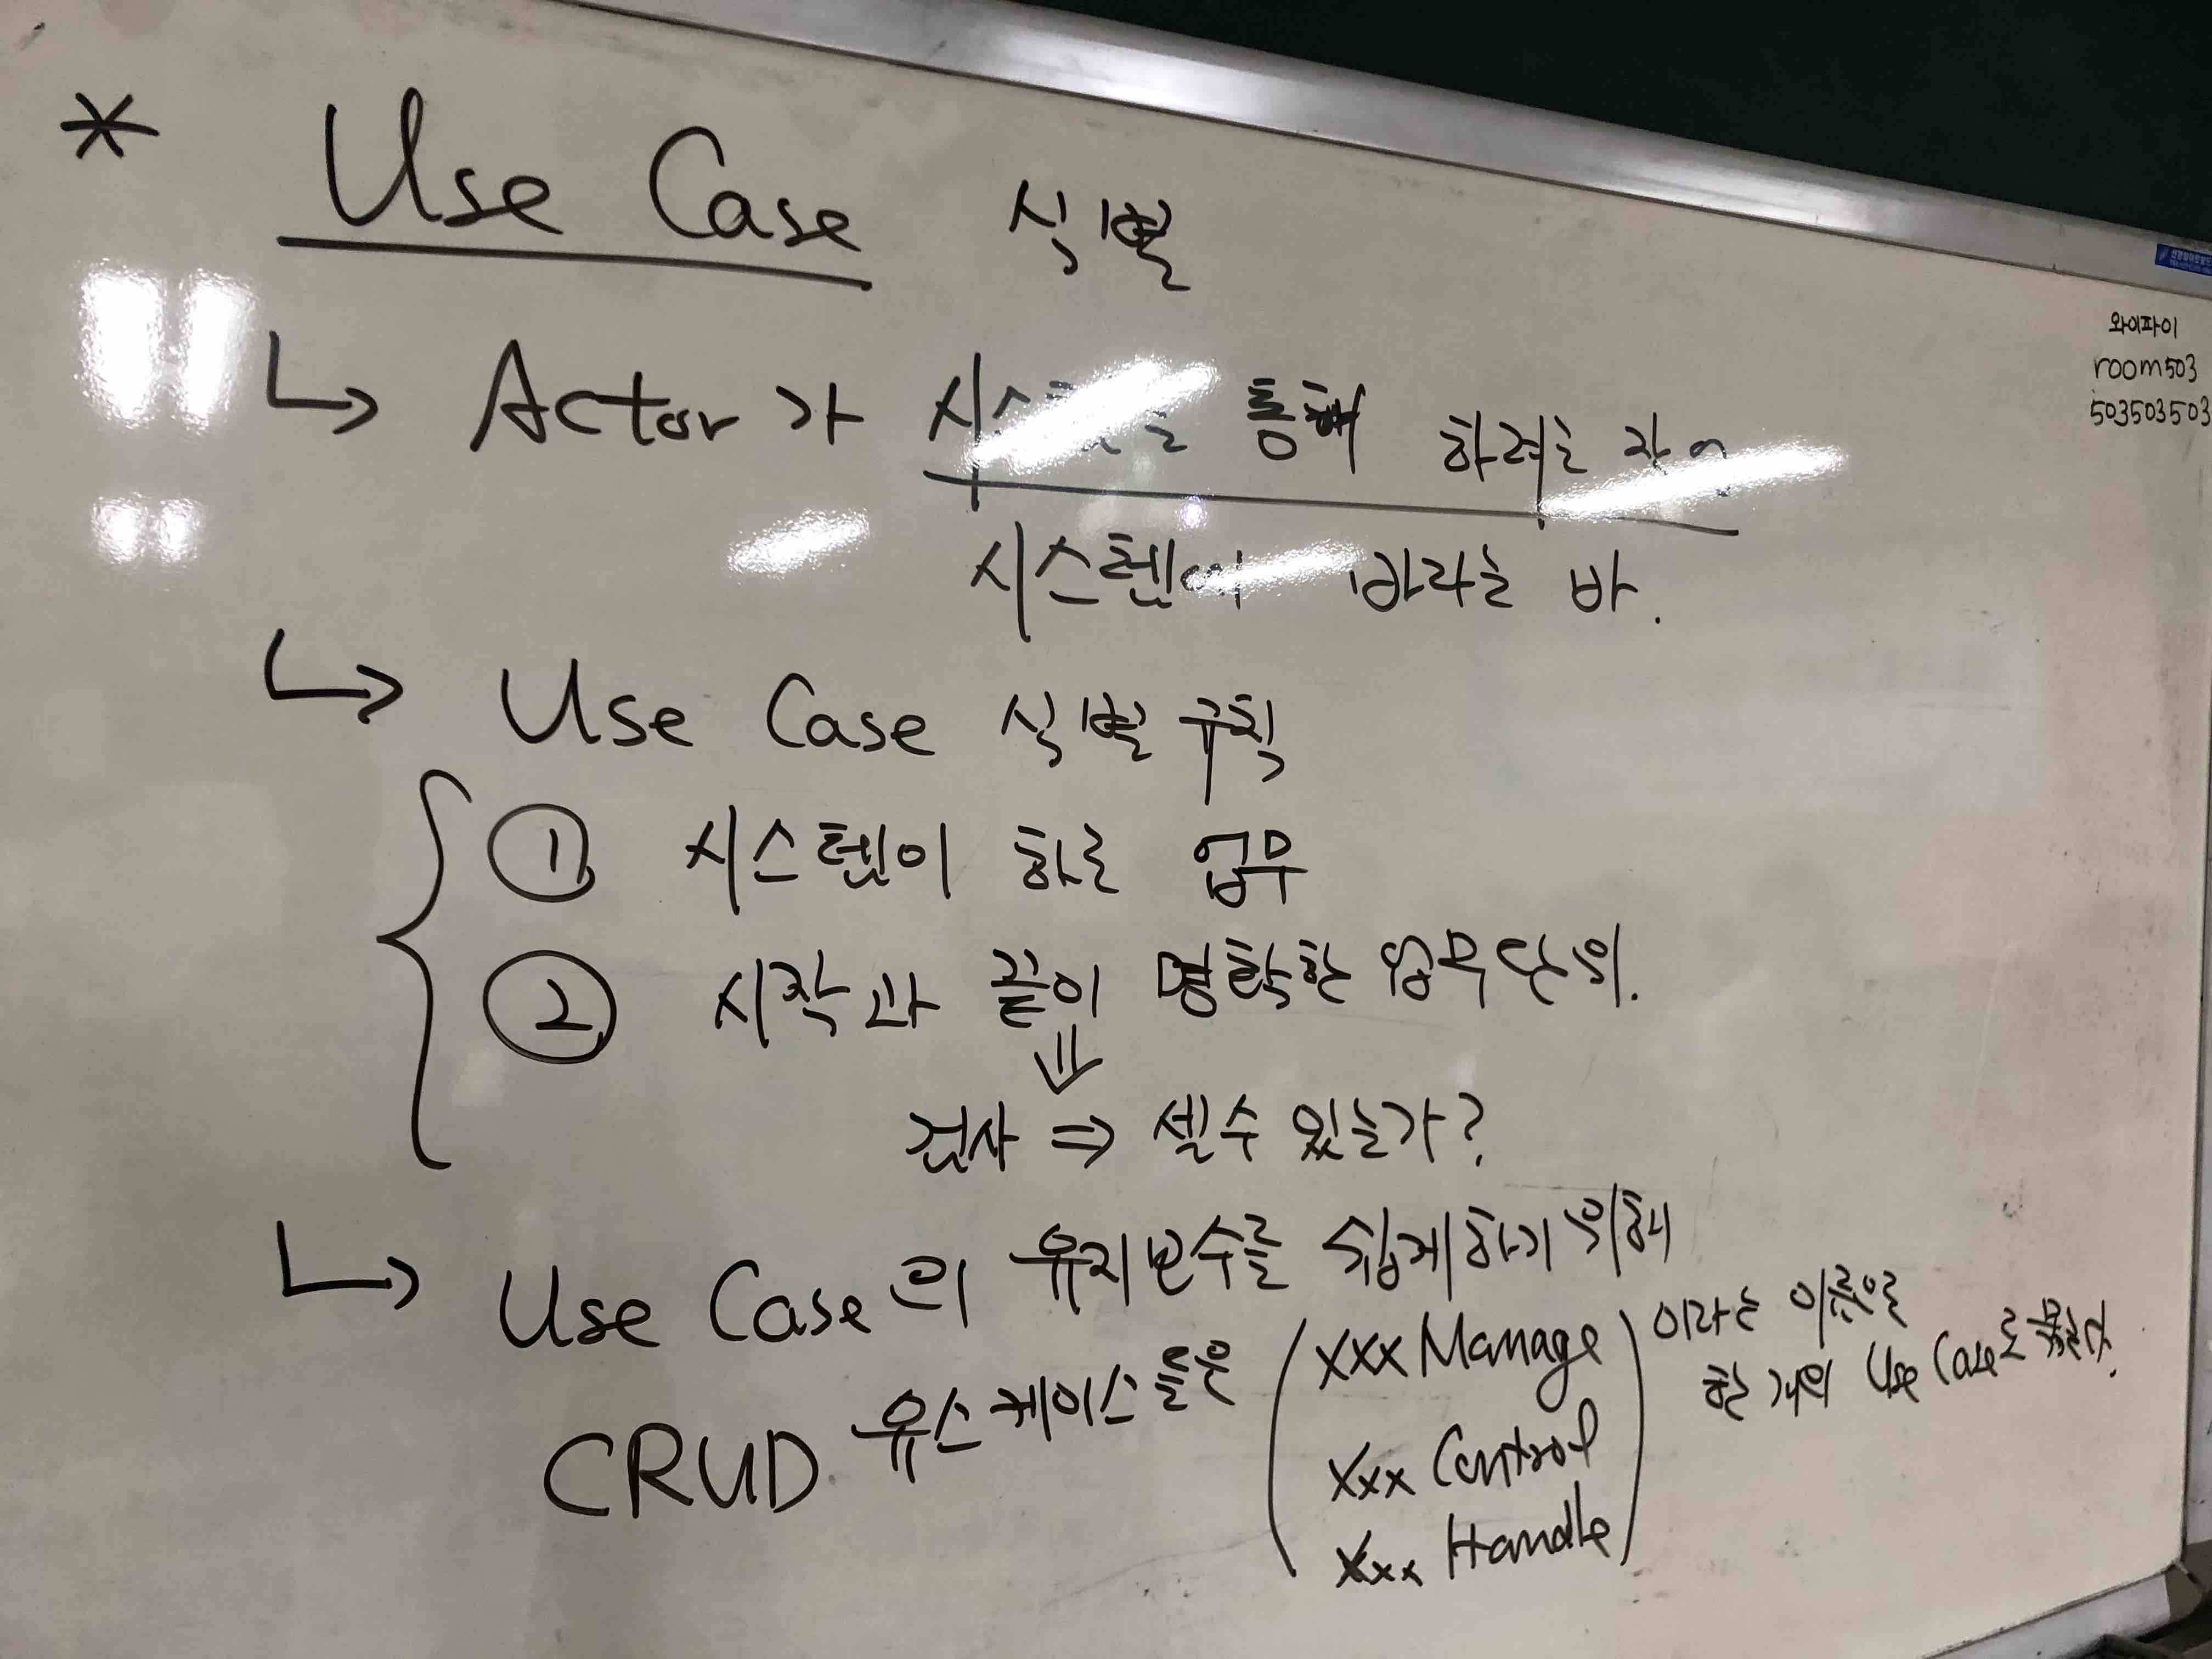 * Use Case 식별
↳ Actor가 시스템을 통해 하려는 작업
시스템에 바라는 바.
↳ Use Case 식별 규칙
① 시스템이 하는 업무
② 시작과 끝이 명확한 업무단위.
⇓
검사 ⇒ 셀 수 있는가?
↳ Use Case의 유지보수를 쉽게하기 위해
CRUD 유스케이스들은 (xxx Manage
xxx Control
xxx Handle)
이라는 이름으로
한 개의 Use Case로 묶는다.
와이파이
room503
503503503